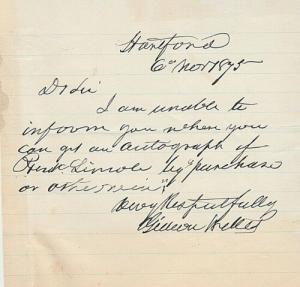 Hartford
6 Nov 1875
Dr Sir
I am unable to
inform you when you
can get an autograph of
Presdt Lincoln by purchase
or otherwise.
Very Respectfully
Gideon Welles